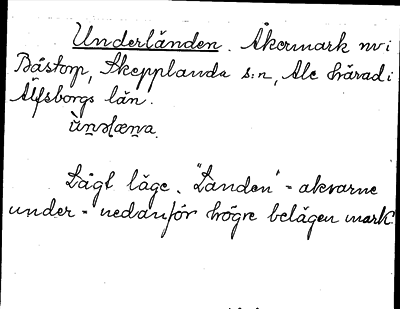 Underländen. Åkermark nv i
Båstorp, Skepplanda s:n, Ale härad i
Älfsborgs län.

Lågt läge. "Landen" - åkrarne
under - nedanför högre belägen mark.